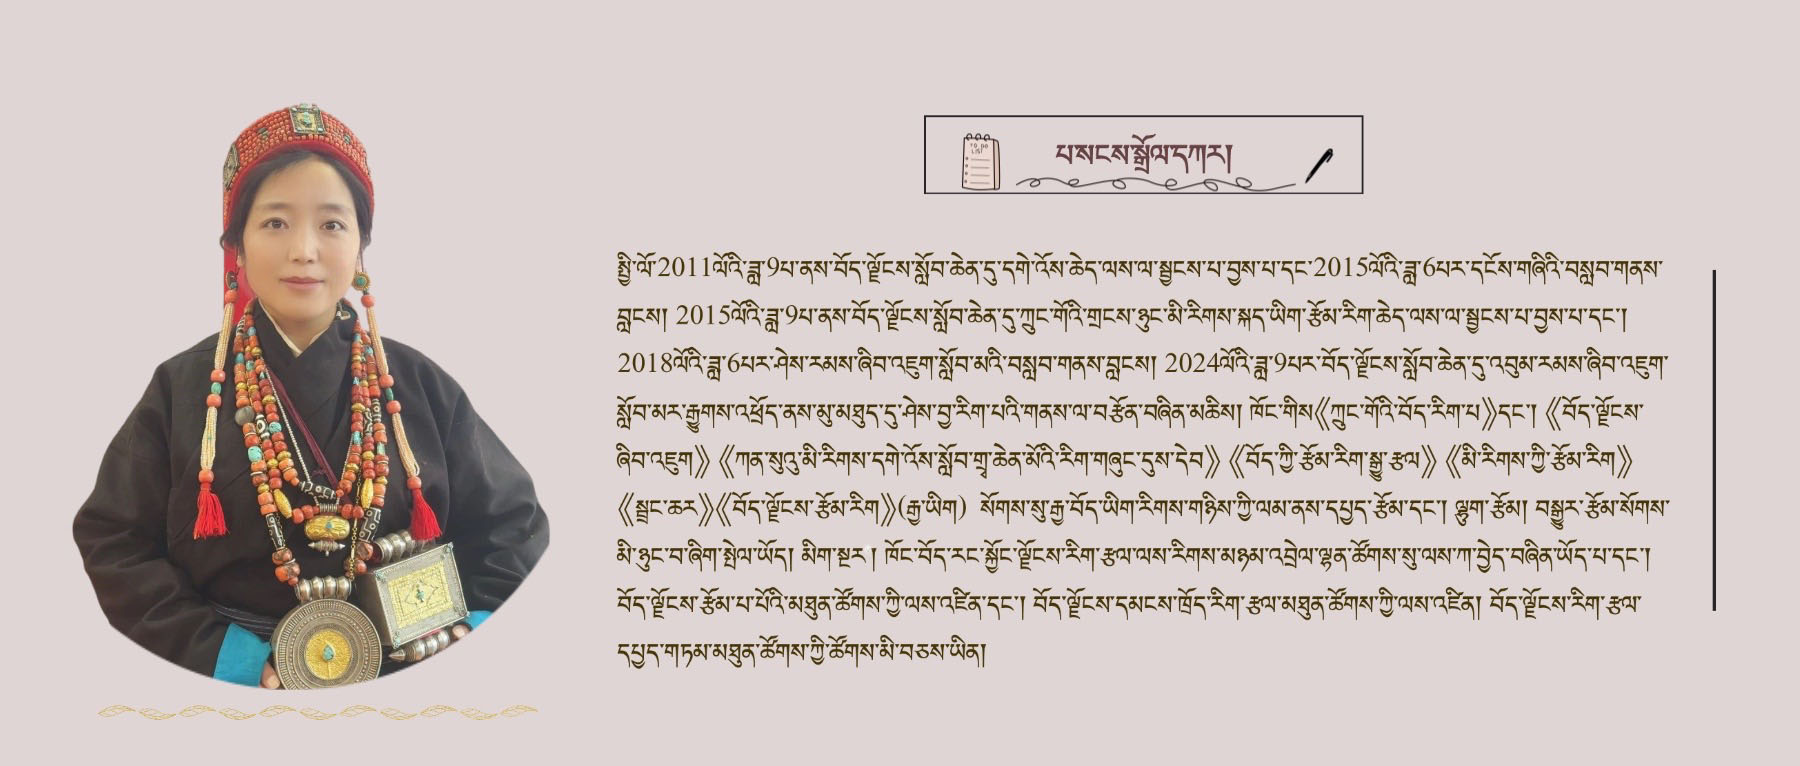 TO DO
LIST
པ་སངས་སྒྲོལ་དཀར།
སྤྱི་ལོ་2011ལོའི་ཟླ་9པ་ནས་བོད་ལྗོངས་སློབ་ཆེན་དུ་དགེ་འོས་ཆེད་ལས་ལ་སྦྱངས་པ་བྱས་པ་དང་2015ལོའི་ཟླ་6པར་དངོས་གཞིའི་བསླབ་གནས་
བླངས། 2015ལོའི་ཟླ་9པ་ནས་བོད་ལྗོངས་སློབ་ཆེན་དུ་ཀྲུང་གོའི་གྲངས་ཉུང་མི་རིགས་སྐད་ཡིག་རྩོམ་རིག་ཆེད་ལས་ལ་སྦྱངས་པ་བྱས་པ་དང་།
2018ལོའི་ཟླ་6པར་ཤེས་རམས་ཞིབ་འཇུག་སློབ་མའི་བསླབ་གནས་བླངས། 2024ལོའི་ཟླ་9པར་བོད་ལྗོངས་སློབ་ཆེན་དུ་འབུམ་རམས་ཞིབ་འཇུག་
སློབ་མར་རྒྱུགས་འཕྲོད་ནས་མུ་མཐུད་དུ་ཤེས་བྱ་རིག་པའི་གནས་ལ་བརྩོན་བཞིན་མཆིས། ཁོང་གིས《ཀྲུང་གོའི་བོད་རིག་པ》དང་། 《བོད་ལྗོངས་
ཞིབ་འཇུག》 《ཀན་སུའུ་མི་རིགས་དགེ་འོས་སློབ་གྲྭ་ཆེན་མོའི་རིག་གཞུང་དུས་དེབ》 《བོད་ཀྱི་རྩོམ་རིག་སྒྱུ་རྩལ》 《མི་རིགས་ཀྱི་རྩོམ་རིག》
《སྦྲང་ཆར》《བོད་ལྗོངས་རྩོམ་རིག》(རྒྱ་ཡིག) སོགས་སུ་རྒྱ་བོད་ཡིག་རིགས་གཉིས་ཀྱི་ལམ་ནས་དཔྱད་རྩོམ་དང་། ལྷུག་རྩོམ། བསྒྱུར་རྩོམ་སོགས་
མི་ཉུང་བ་ཞིག་སྤེལ་ཡོད། མིག་སྔར། ཁོང་བོད་རང་སྐྱོང་ལྗོངས་རིག་རྩལ་ལས་རིགས་མཉམ་འབྲེལ་ལྷན་ཚོགས་སུ་ལས་ཀ་བྱེད་བཞིན་ཡོད་པ་དང་།
བོད་ལྗོངས་རྩོམ་པ་པོའི་མཐུན་ཚོགས་ཀྱི་ལས་འཛིན་དང་། བོད་ལྗོངས་དམངས་ཁྲོད་རིག་རྩལ་མཐུན་ཚོགས་ཀྱི་ལས་འཛིན། བོད་ལྗོངས་རིག་རྩལ་
དཔྱད་གཏམ་མཐུན་ཚོགས་ཀྱི་ཚོགས་མི་བཅས་ཡིན།